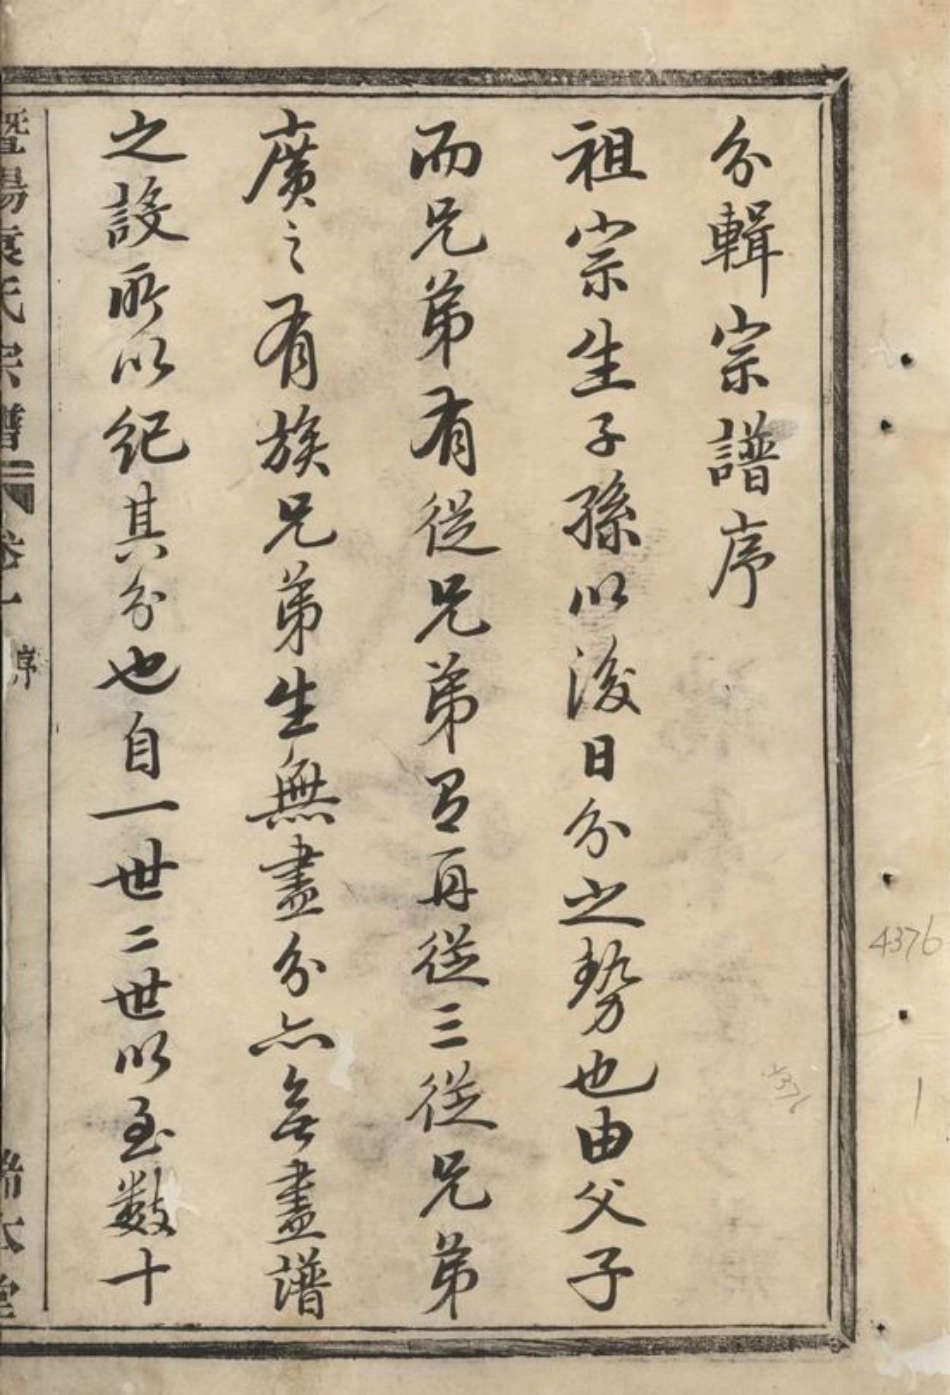 分輯宗譜序
祖宗生子孫以後日分之勢也由父子
而兄弟有從兄弟有再從三從兄弟
廣之有族兄弟生無盡分亦無盡譜
之設所以紀其分也自一世二世以至數十
暨陽袁氏宗譜 卷一 序
4376